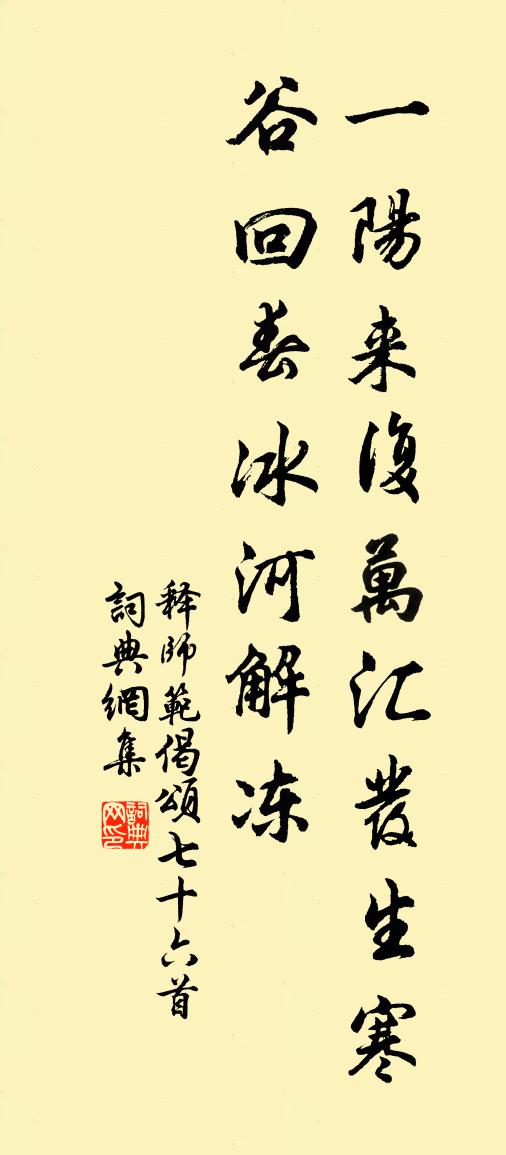 一陽来復萬汇發生寒
谷回春冰河解冻
释師範偈頌七十六首
詞典網集
詞典网印